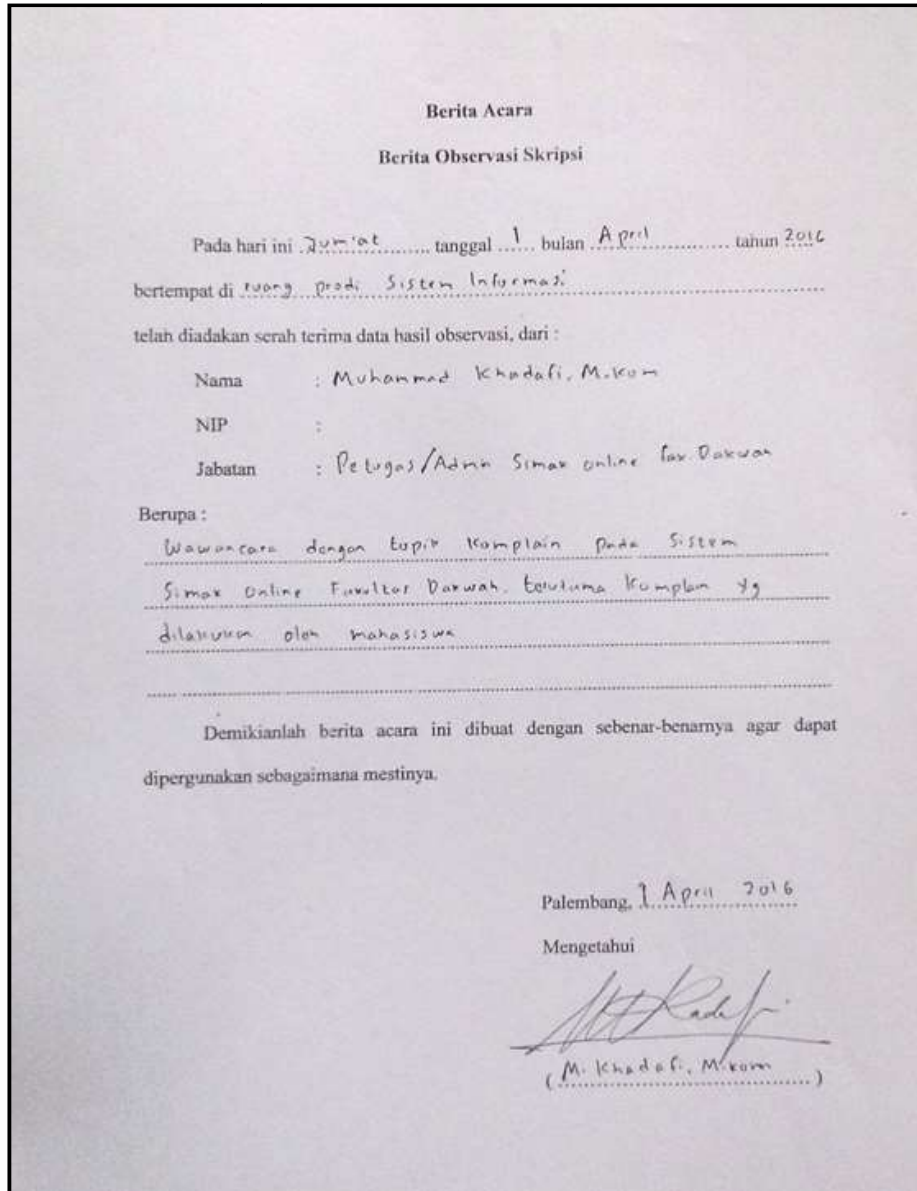 Berita Acara
Berita Observasi Skripsi
Pada hari ini Jum'at tanggal 1 bulan April tahun 2016
bertempat di ruang prodi Sistem Informasi
telah diadakan serah terima data hasil observasi, dari :
Nama : Muhammad Khadafi, M.Kom
NIP :
Jabatan : Petugas/Admin Simak online Fak. Dakwah
Berupa :
Wawancara dengan topik Komplain pada Sistem
Simak Online Fakultas Dakwah. terutama Komplain yg
dilakukan oleh mahasiswa
Demikianlah berita acara ini dibuat dengan sebenar-benarnya agar dapat
dipergunakan sebagaimana mestinya.
Palembang, 1 April 2016
Mengetahui
(M. Khadafi, M.Kom)